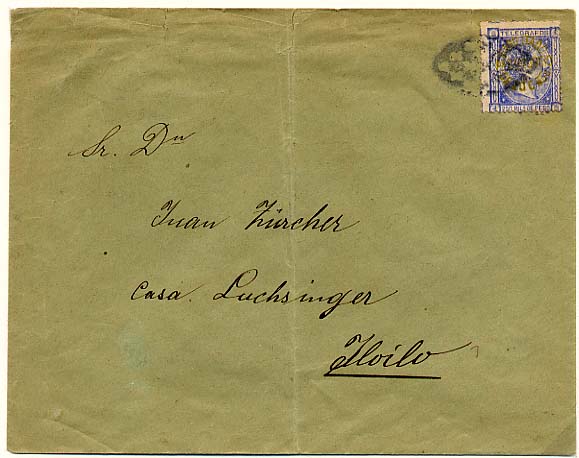 TELEGRAFOS
Sr. Dn
Juan Zürcher
Casa. Luchsinger
Iloilo